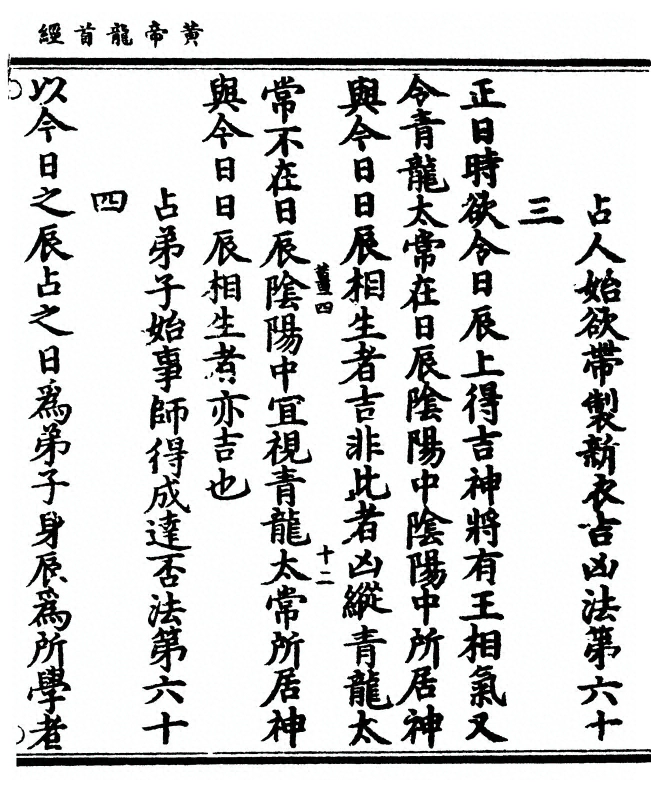 黃帝龍首經
占人始欲帶製新衣吉凶法第六十
三
正日時欲令日辰上得吉神將有王相氣又
令青龍太常在日辰陰陽中陰陽中所居神
與今日日辰相生者吉非此者凶縱青龍太
薑四
十二
常不在日辰陰陽中宜視青龍太常所居神
與今日日辰相生者亦吉也
占弟子始事師得成達否法第六十
四
以今日之辰占之日為弟子身辰為所學者